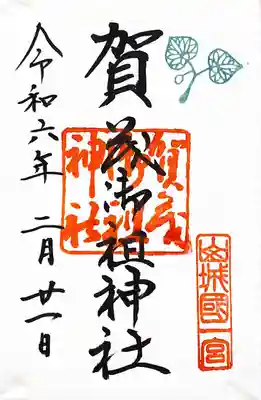 山城國一宮
賀茂御祖神社
賀茂御祖神社
令和六年 二月 廿一日